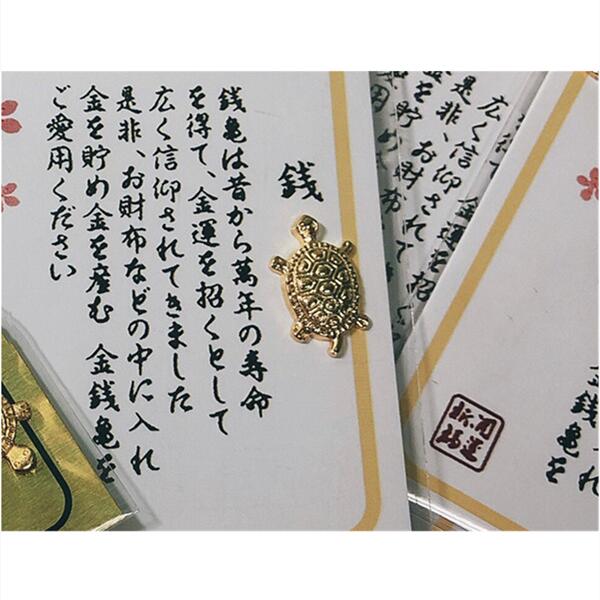 銭
銭亀は昔から萬年の寿命
を得て、金運を招くとして
広く信仰されてきました
是非、お財布などの中に入れ
金を貯め金を産む 金銭亀を
ご愛用ください
広く信仰され
是非、お財布な
金を貯め
開運
祈願